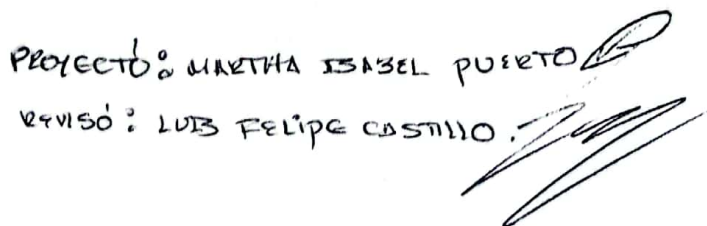 PROYECTÓ: MARTHA ISABEL PUERTO
REVISÓ: LUIS FELIPE CASTILLO.